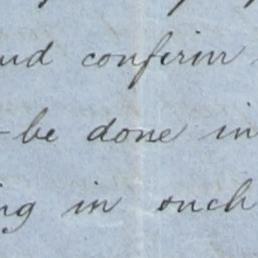 and confirm
be done in
ng in such